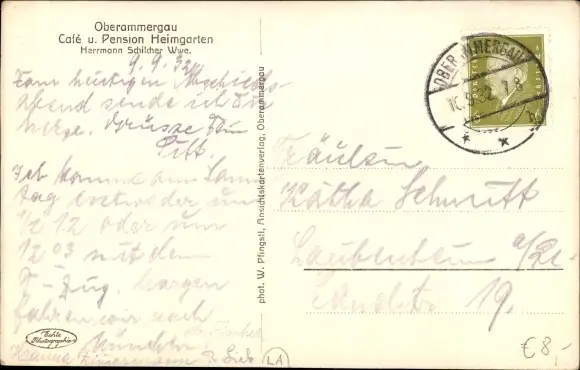 Oberammergau
Café u. Pension Heimgarten
Herrmann Schilcher Wwe.
9.9.32
Zum heutigen Abschieds-
abend sende ich Dir
herzl. Grüsse Dein
Ich komme am Sams
tag entweder um
1/2 12 oder um
1/2 03 mit dem
D-Zug. Morgen
fahren wir nach
München.
Hanna Zimmermann
phot. W. Pfingstl, Ansichtskartenverlag, Oberammergau
Echte Photographie
OBERAMMERGAU
10.9.32
Fräulein
Kätha Schmitt
Laubenheim a/Rh.
19.
LA
€ 8,-